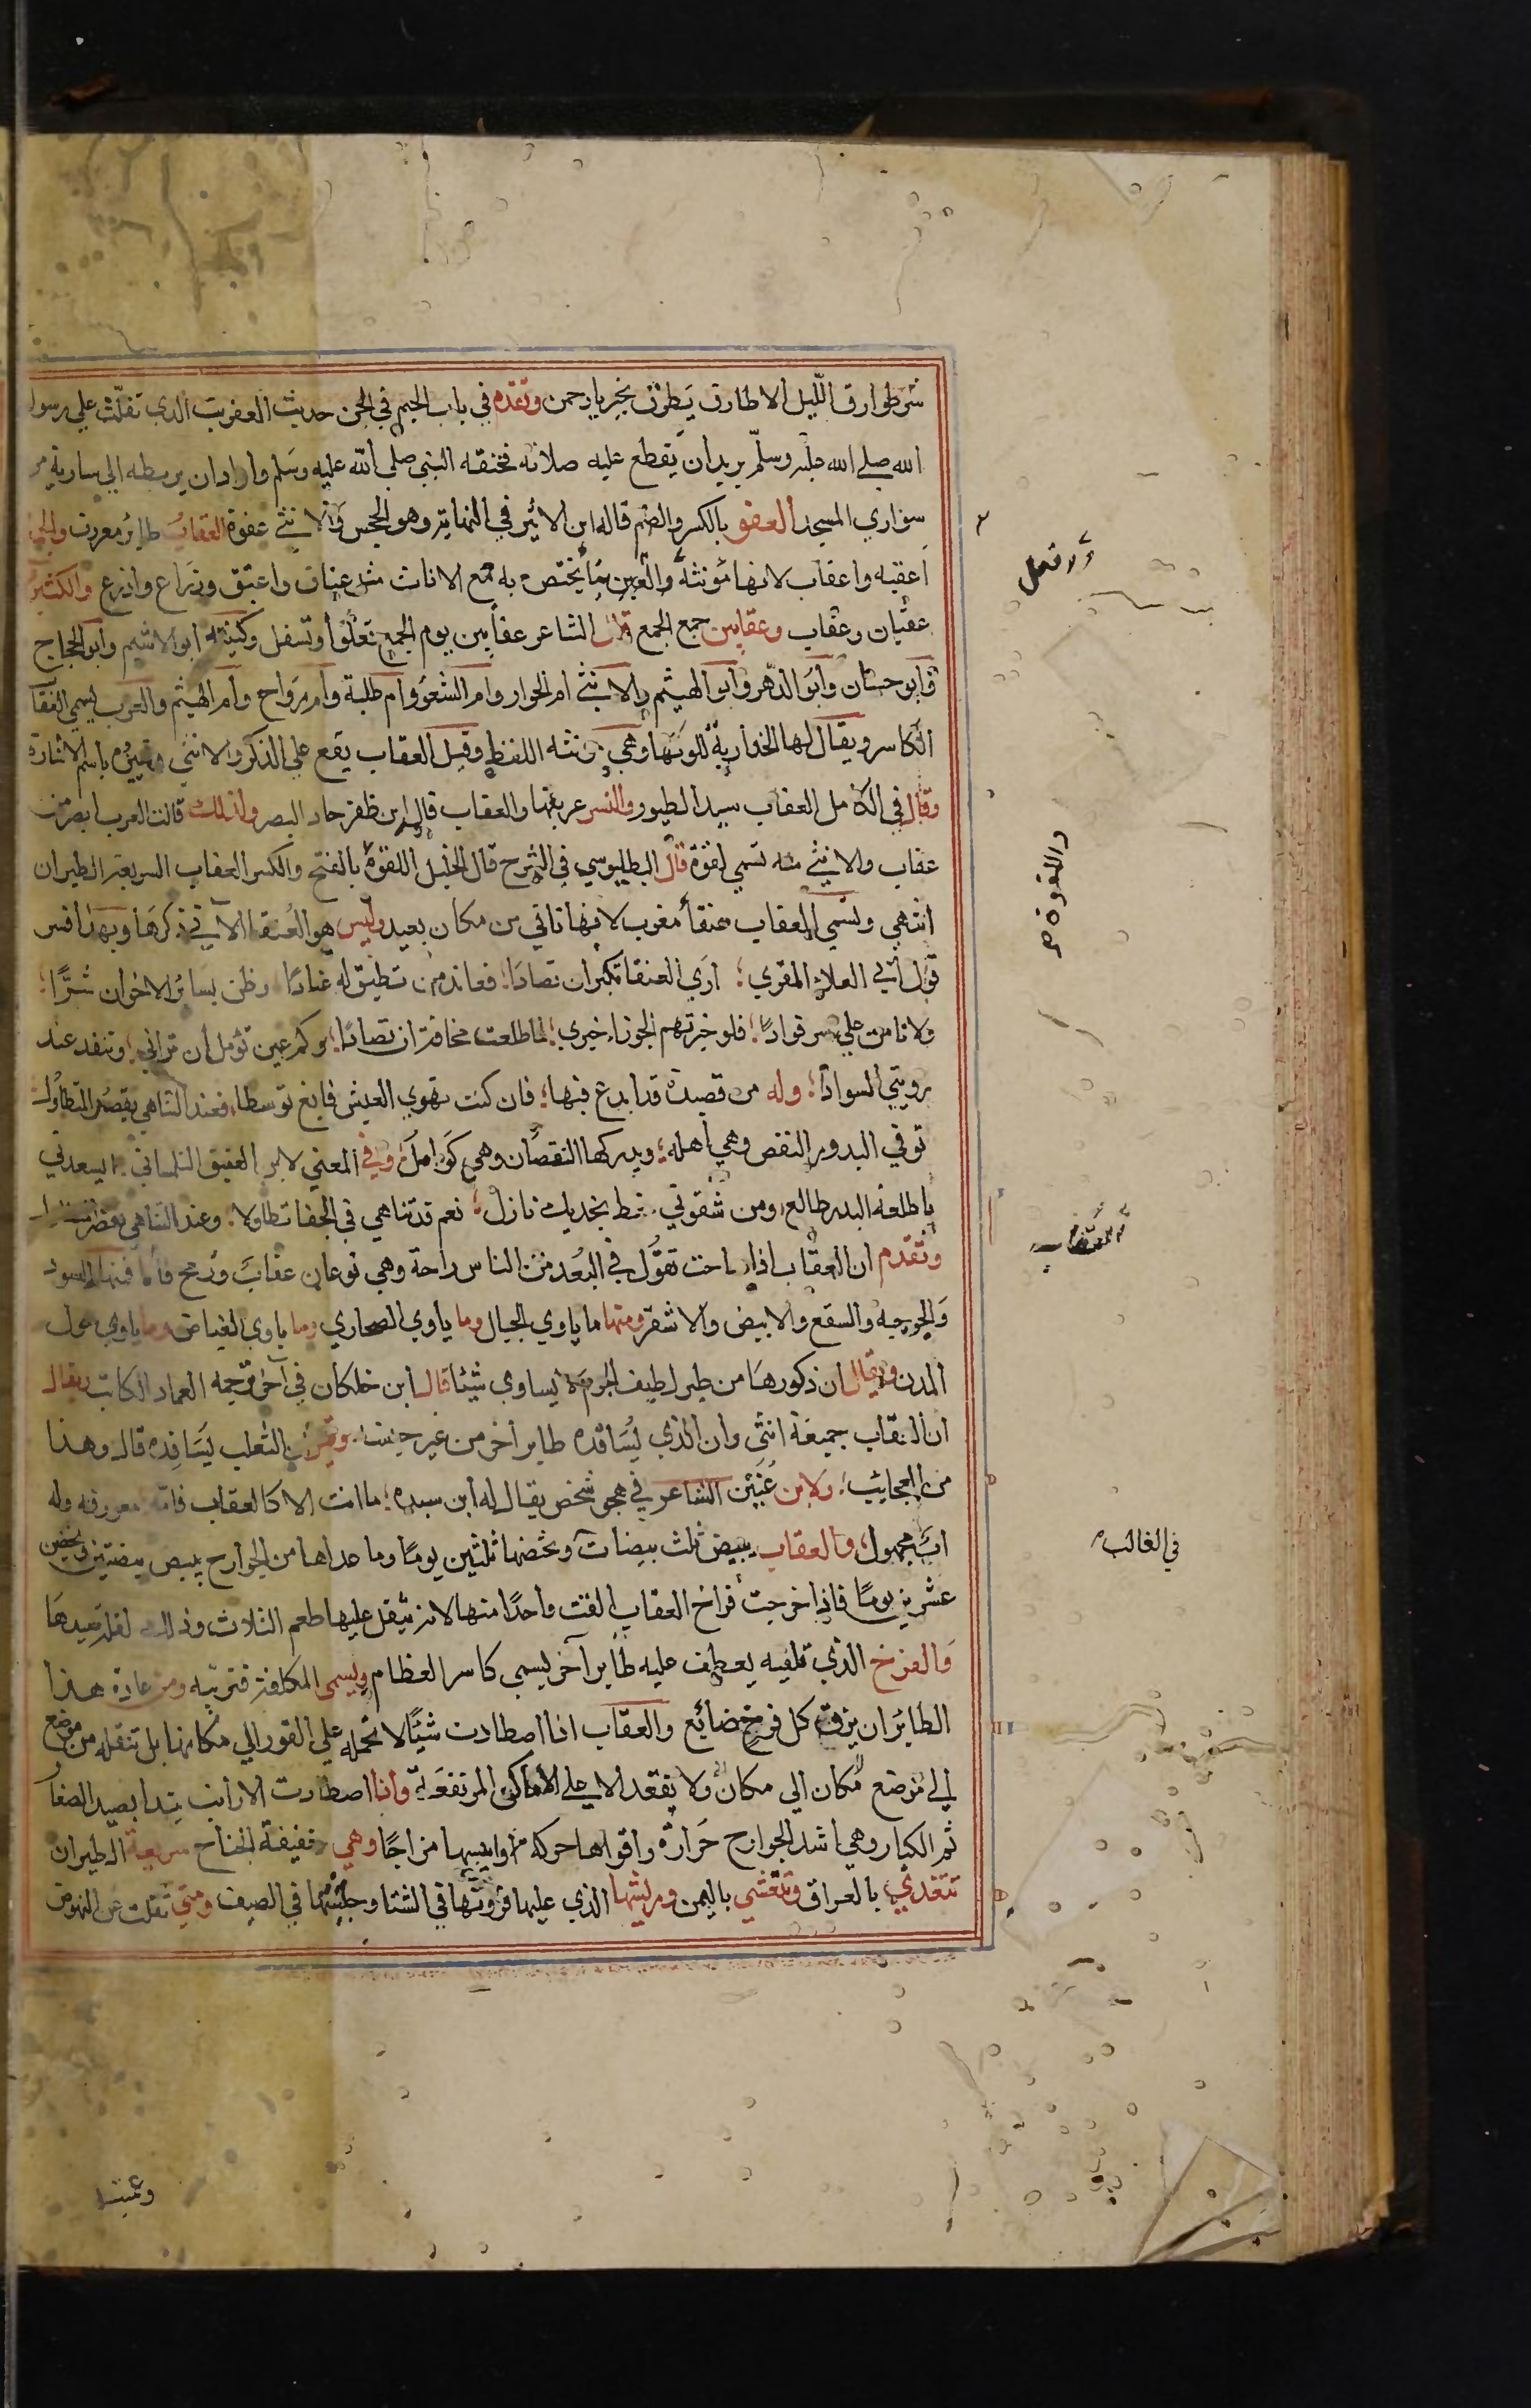 شر طوارق الليل الا طارق يطرق بخير يا رحمن وتقدم في باب الجيم في الجن حديث العفريت الذي تفلت علي رسول
الله صلي الله عليه وسلم يريد أن يقطع عليه صلاته فخنقه النبي صلي الله عليه وسلم واراد ان يربطه الي سارية من
سواري المسجد العفو بالكسر والضم قاله ابن الاثير في النهاية وهو الجحش والانثي عفوة العقاب طائر معروف والجمع
اعقبه واعقاب لانها مؤنثة والعين مما يختص به جمع الاناث مثل عناق واعنق وذراع واذرع والكثير
عقبان وعقاب وعقابين جمع الجمع قال الشاعر عقابين يوم الجمع تعلوا وتسفل وكنيته ابو الاشيم وابو الحجاج
وابو حسان وابو الدهر وابو الهيثم والانثي ام الحوار وام الشعو وام طلبة وام مرواح وام الهيثم والعرب يسمي العقاب
الكاسر ويقال لها الخدارية للونها وهي مؤنثة اللفظ وقيل العقاب يقع علي الذكر والانثي وتمييزه باسم الاشارة
وقال في الكامل العقاب سيد الطيور والنسر عريفها والعقاب قال ابن ظفر حاد البصر ولذلك قالت العرب ابصر من
عقاب والانثي منه تسمي لقوة قال البطليوسي في الشرح قال الخليل اللقوة بالفتح والكسر العقاب السريعة الطيران
انتهي وتسمي العقاب عنقا مغرب لانها تاتي من مكان بعيد وليس هو العنقا الاتي ذكرها وبهذا فسر
قول ابي العلاء المقري ؛ اري العنقا تكبر ان تصادا ؛ فعاند من تطيق له عنادا وظن بسائر الاخوان شرًا ؛
ولا تامن علي سر فوادًا ؛ فلو خبرتهم الجوزا خبري ؛ لما طلعت مخافة ان تصادًا ؛ وكم عين تؤمل ان تراني ؛ وتفقد عند
رويتي السوادا ؛ وله من قصيدة قد ابدع فيها ؛ فان كنت تهوي العيش فابغ توسطا فعند التناهي يقصر المتطاول
توفي البدور النقص وهي اهله ؛ ويدركها النقصان وهي كوامل ؛ وفي المعني لابن العفيف التلمساني ايسعدني
يا طلعة البدر طالع ومن شقوتي خط بخديك نازل ؛ نعم قد تناهي في الجفا تطاولا ؛ وعند التناهي يقصر
وتقدم ان العقاب اذا صاحت تقول في البعد من الناس راحة وهي نوعان عقاب وزمج فاما فمنها السود
والخوجية والسقع والابيض والاشقر ومنها ما ياوي الجبال وما ياوي الصحاري وما ياوي الغياض وما ياوي حول
المدن ويقال ان ذكورها من طير لطيف الجرم لا يساوي شيئا قال ابن خلكان في آخر ترجمه العماد الكاتب يقال
ان العقاب جميعه انثي وان الذي يسافده طاير اخر من غير جنسه وقيل ان الثعلب يسافده قال وهذا
من العجائب ؛ ولابن عُنَيْن الشاعر في هجو شخص يقال له ابن سيده ؛ ما انت الا كالعقاب فامّه معروفة وله
اب مجهول ؛ والعقاب يبيض ثلث بيضات وتحضنها ثلثين يومًا وما عداها من الجوارح يبيض بيضتين ويحضن
عشرين يومًا فاذا خرجت فراخ العقاب القت واحدًا منها لانه يثقل عليها طعم الثلاث وذلك لقلة صيدها
والفرخ الذي تلقيه يعطف عليه طاير آخر يسمي كاسر العظام ويسمي المكلفة فتربيه ومن عادة هذا
الطائر ان يزق كل فرخ ضائع والعقاب اذا اصطادت شيئًا لا تحمله علي الفور الي مكانها بل تنقله من موضع
الي موضع مكان الي مكان ولا يقعد الا علي الاماكن المرتفعة واذا اصطادت الارانب تبدا بصيد الصغار
ثم الكبار وهي اشد الجوارح حرارة واقواها حركه وايبسها مزاجًا وهي خفيفة الجناح سريعة الطيران
تتغدي بالعراق وتتعشي باليمن وريشها الذي عليها فروتها في الشتا وحليتها في الصيف ومتي ثقلت عن النهوض
والافعل
واللقوة صح
العقاب
في الغالب
وعميت